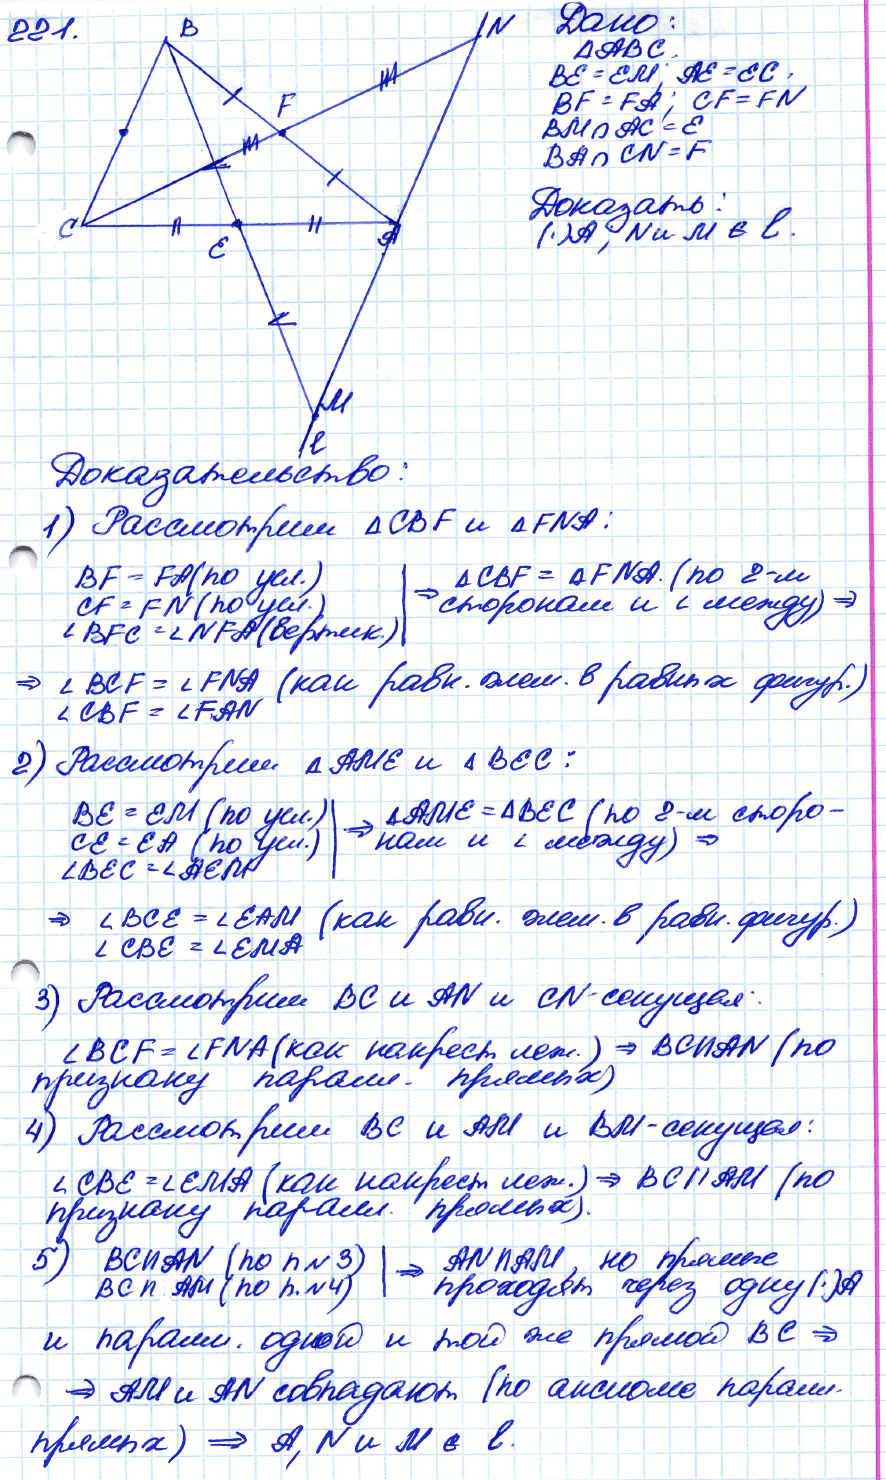 221.
B
N
F
C
E
A
M
l
Дано:
△ABC.
BE = EM; AE = EC.
BF = FA; CF = FN
BM ∩ AC = E
BA ∩ CN = F
Доказать:
(·)A; N и M ∈ l.
Доказательство:
1) Рассмотрим △CBF и △FNA:
BF = FA (по усл.)
CF = FN (по усл.)
∠BFC = ∠NFA (вертик.)
⇒ △CBF = △FNA. (по 2-м
сторонам и ∠ между) ⇒
⇒ ∠BCF = ∠FNA (как равн. элем. в равных фигур.)
∠CBF = ∠FAN
2) Рассмотрим △AME и △BEC:
BE = EM (по усл.)
CE = EA (по усл.)
∠BEC = ∠AEM
⇒ △AME = △BEC (по 2-м сторо-
нам и ∠ между) ⇒
⇒ ∠BCE = ∠EAM (как равн. элем. в равн. фигур.)
∠CBE = ∠EMA
3) Рассмотрим BC и AN и CN-секущая:
∠BCF = ∠FNA (как накрест леж.) ⇒ BC || AN (по
признаку паралл. прямых)
4) Рассмотрим BC и AM и BM-секущая:
∠CBE = ∠EMA (как накрест леж.) ⇒ BC || AM (по
признаку паралл. прямых).
5) BC || AN (по п №3)
BC || AM (по п. №4)
⇒ AN || AM, но прямые
проходят через одну (·)A
и паралл. одной и той же прямой BC ⇒
⇒ AM и AN совпадают (по аксиоме паралл.
прямых) ⇒ A, N и M ∈ l.